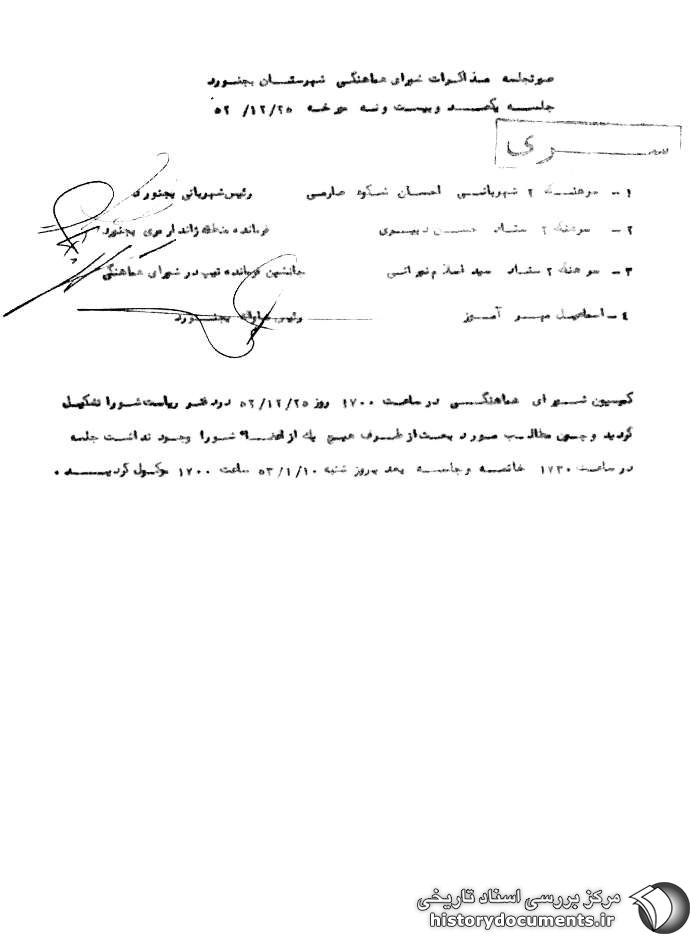 صورتجلسه مذاکرات شورای هماهنگی شهرستان بجنورد
جلسه یکصد و بیست و نه مورخه ۵۲/۱۲/۲۵
سری
۱- سرهنگ ۲ شهربانی احسان شکوه صارمی رئیس شهربانی بجنورد
۲- سرهنگ ۲ ستاد حسن دبیری فرمانده منطقه ژاندارمری بجنورد
۳- سرهنگ ۲ ستاد سید اسلام تهرانی جانشین فرمانده تیپ در شورای هماهنگی
٤- اسماعیل مهر آموز رئیس ساواک بجنورد
کمیسیون شورای هماهنگی در ساعت ۱۷۰۰ روز ۵۲/۱۲/۲۵ در دفتر ریاست شورا تشکیل
گردید و چون مطالب مورد بحث از طرف هیچ یک از اعضاء شورا وجود نداشت جلسه
در ساعت ۱۷۳۰ خاتمه و جلسه بعد بروز شنبه ۵۳/۱/۱۰ ساعت ۱۷۰۰ موکول گردید .
مرکز بررسی اسناد تاریخی
historydocuments.ir